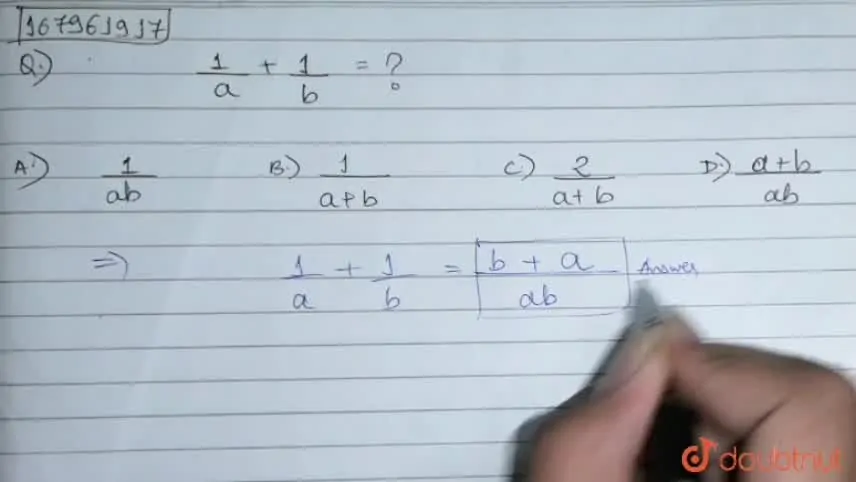 167961917
Q.) 1/a + 1/b = ?
A.) 1/ab B.) 1/a+b C.) 2/a+b D.) a+b/ab
⇒) 1/a + 1/b = b + a/ab Answer
doubtnut